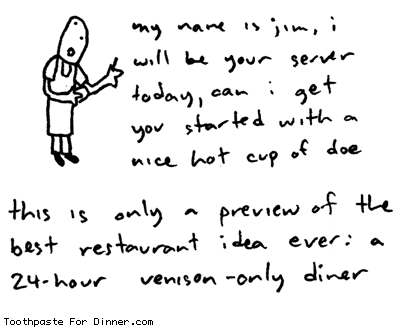 my name is jim, i
will be your server
today, can i get
you started with a
nice hot cup of doe
this is only a preview of the
best restaurant idea ever: a
24-hour venison-only diner
Toothpaste For Dinner.com